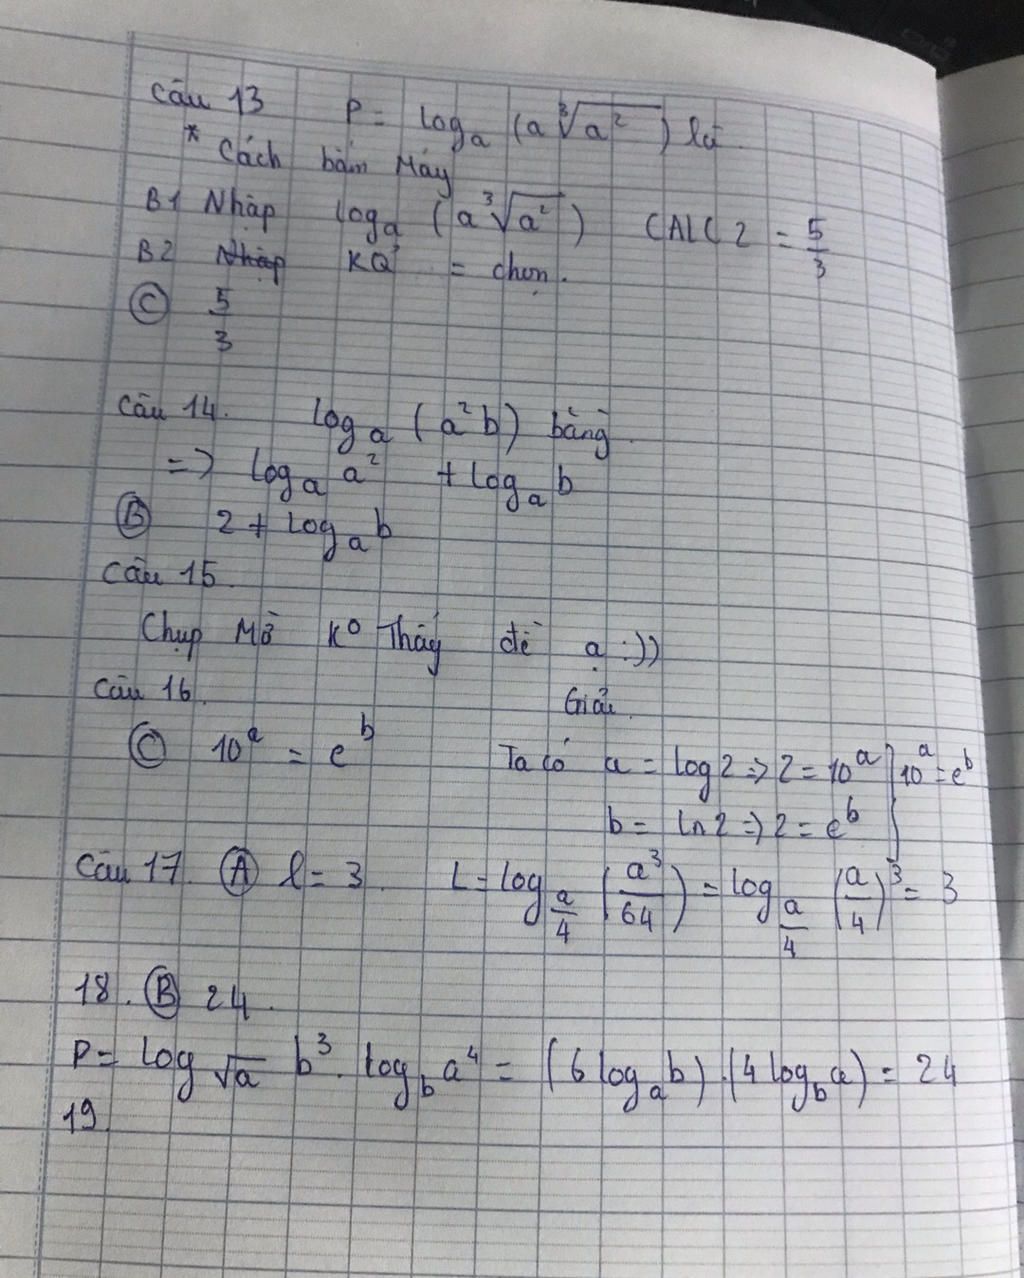 Câu 13 P = log_a (a ∛a²) là
* Cách bấm Máy
B1 Nhập log_a (a ∛a²) CALC 2 = 5/3
B2 Nhập KQ = chọn.
Ⓒ 5/3
Câu 14. log_a (a²b) bằng
=> log_a a² + log_a b
Ⓑ 2 + log_a b
Câu 15.
Chụp Mờ K° Thấy đề ạ :))
Câu 16. Giải
Ⓒ 10^a = e^b Ta có a = log 2 => 2 = 10^a } 10^a = e^b
b = ln 2 => 2 = e^b
Câu 17. Ⓐ l = 3. L = log_{a/4} (a³/64) = log_{a/4} (a/4)³ = 3
18. Ⓑ 24.
P = log_{√a} b³ . log_b a⁴ = (6 log_a b) . (4 log_b a) = 24
19.